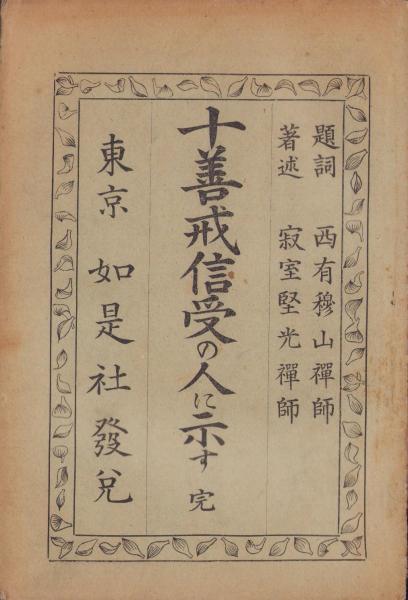 題詞 西有穆山禪師
著述 寂室堅光禪師
十善戒信受の人に示す 完
東京 如是社發兌